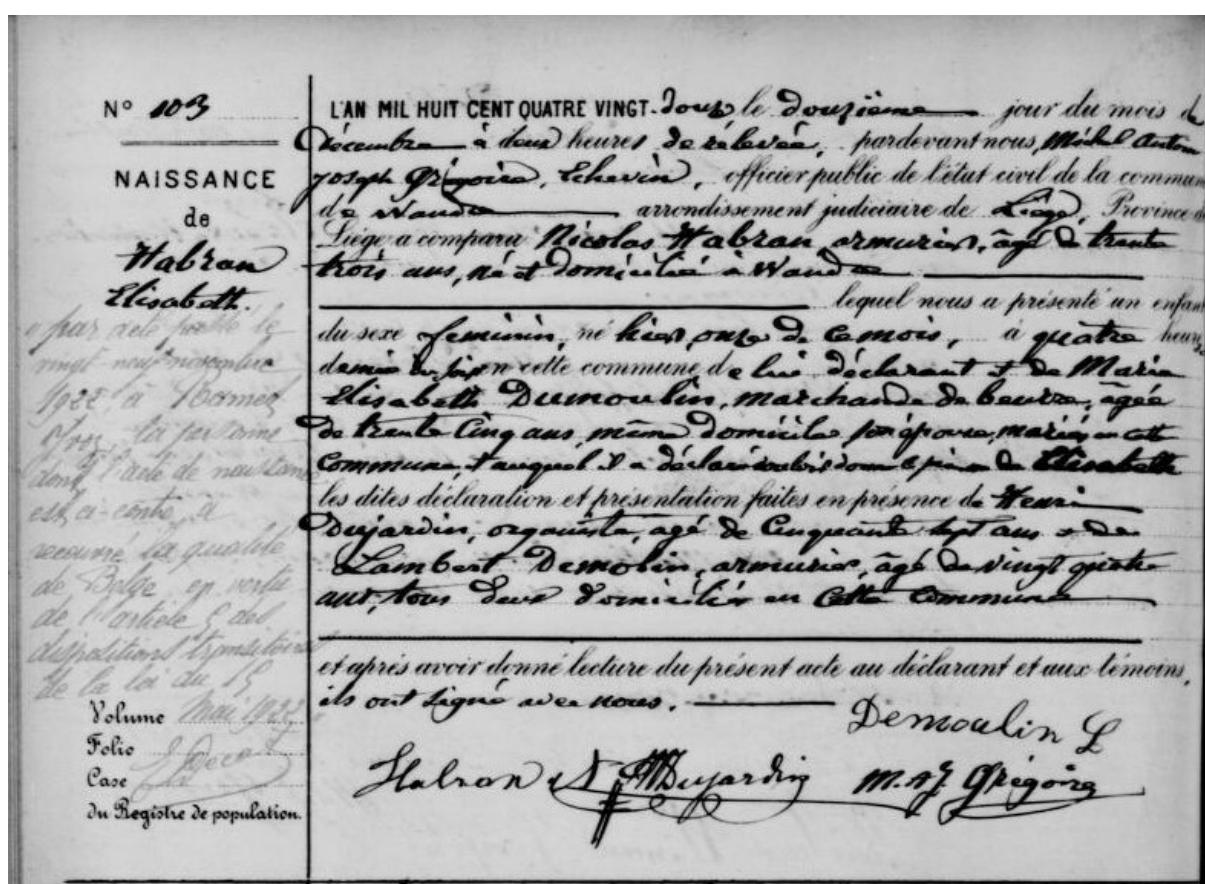 N° 103
NAISSANCE
de
Habran
Elisabeth.
par acte
vingt-neuf novembre
1922 à
la personne
dont l'acte de naissance
est ci-contre a
recouvré la qualité
de Belge en vertu
de l'article 5 des
dispositions transitoires
de la loi du 15
Volume Mai 1922
Folio
Case
du Registre de population.
L'AN MIL HUIT CENT QUATRE VINGT-douze le douzième jour du mois de
Décembre à deux heures de relevée, pardevant nous, Michel Antoine
Joseph Grégoire, Echevin, officier public de l'état civil de la commune
de Wandre arrondissement judiciaire de Liége, Province de
Liége a comparu Nicolas Habran, armurier, âgé de trente
trois ans, né et domicilié à Wandre
lequel nous a présenté un enfant
du sexe feminin, né hier, onze de ce mois, à quatre heures
demie du soir en cette commune de lui déclarant et de Marie
Elisabeth Dumoulin, marchande de beurre, âgée
de trente cinq ans, même domicile son épouse, mariés en cette
commune, et auquel il a déclaré vouloir donner le prénom de Elisabeth
les dites déclaration et présentation faites en présence de Henri
Dujardin, organiste, agé de Cinquante sept ans et de
Lambert Demolin, armurier, âgé de vingt quatre
ans, tous deux domiciliés en cette commune
et après avoir donné lecture du présent acte au déclarant et aux témoins,
ils ont signé avec nous.
Demoulin L
Habran N Dujardin M. A. J. Grégoire